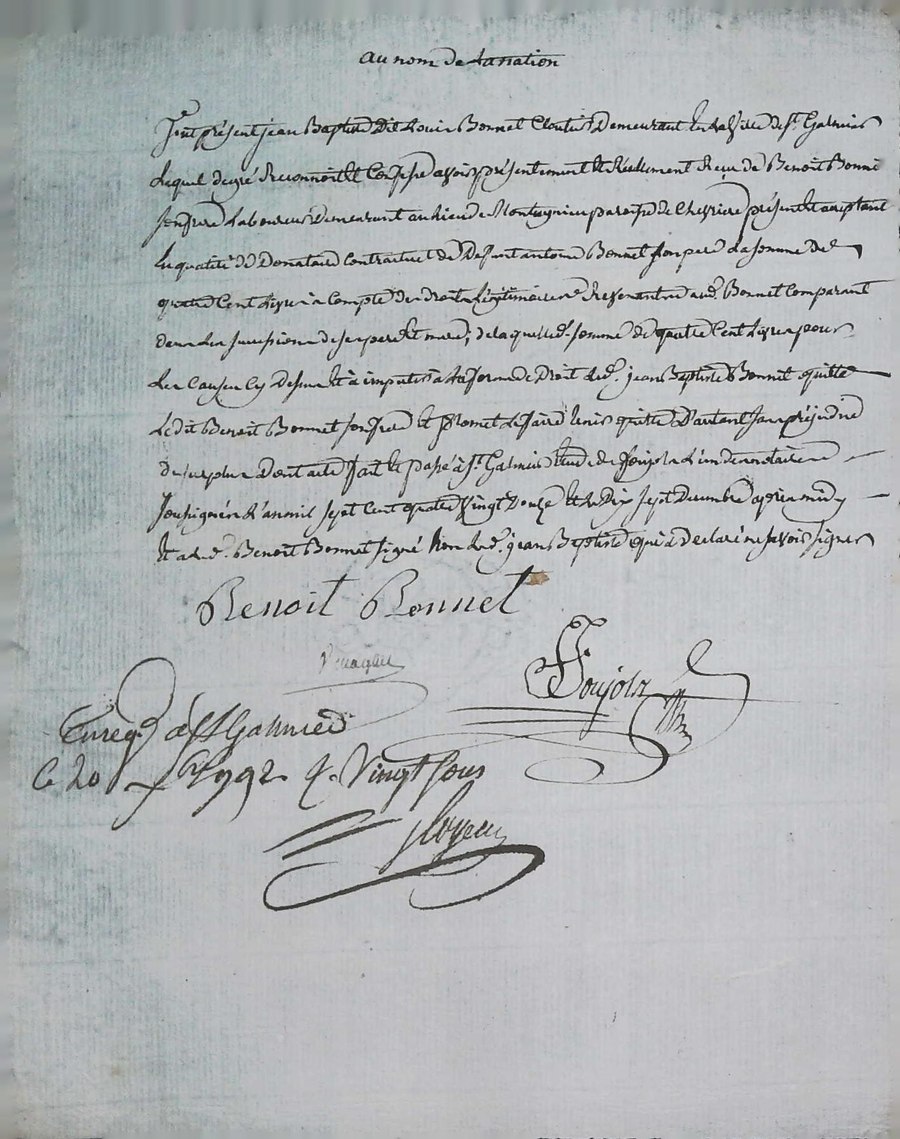 au nom de la nation
fut présent jean Baptiste dit Louis Bonnet Cloutier demeurant en la ville de st. Galmier
Lequel de gré Reconnoit et Confesse avoir présentement et Réellement Reçu de Benoit Bonnet
son frere Laboureur demeurant au lieu de paroisse de Chevriere présent et aceptant
En qualité de Donataire Contractuel de Defunt antoine Bonnet son pere La somme de
quatre Cent Livres a Compte des droits Légitimaires Revenant aud. Bonnet Comparant
dans Les successions de ses pere et mere, de laquelle d. somme de quatre Cent Livres pour
Les Causes Cy dessus et à imputer à la forme de Droit led. jean Baptiste Bonnet quitte
Ledit Benoit Bonnet son frere et promet Le faire tenir quitte D'autant sans préjudice
du surplus dont acte fait et passé à st. Galmier Etude de foujols L'un des notaires
soussignés L'an mil sept cent quatre vingt douze et le Dix sept Decembre apres midy
et a led. Benoit Bonnet signé Non led. jean Baptiste qui a declaré ne savoir signer
Benoit Bonnet
foujols
Enreg. à st Galmier
Le 20 1792 R. Vingt sous